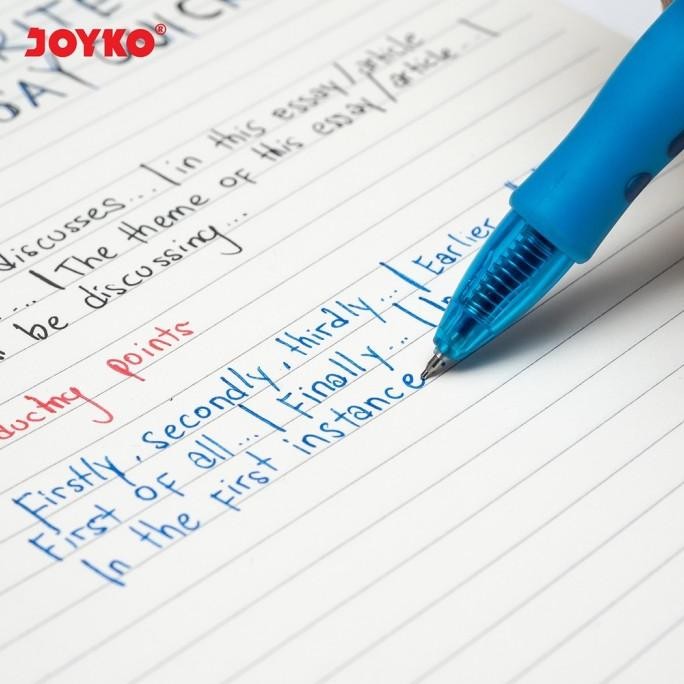 JOYKO®
SAY QUICK
discusses... | in this essay/article
... | The theme of this essay/article... |
be discussing...
points
Firstly, secondly, thirdly... | Earlier
First of all... | Finally... |
In the first instance